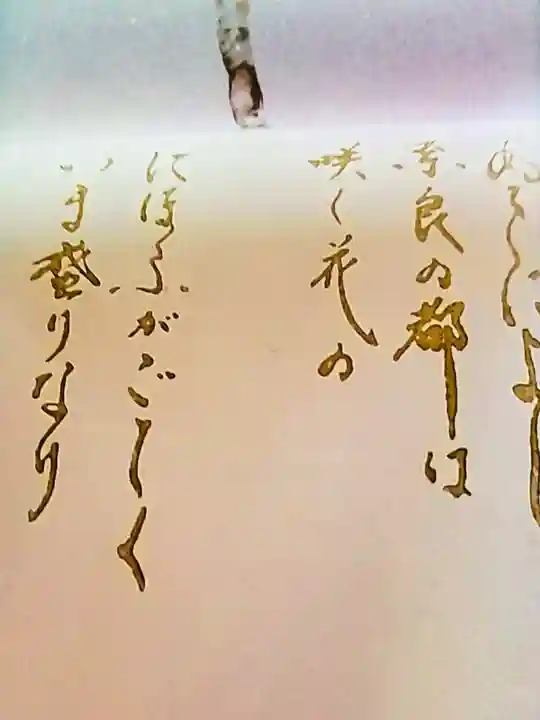 あをによし
奈良の都は
咲く花の
にほふがごとく
いま盛りなり